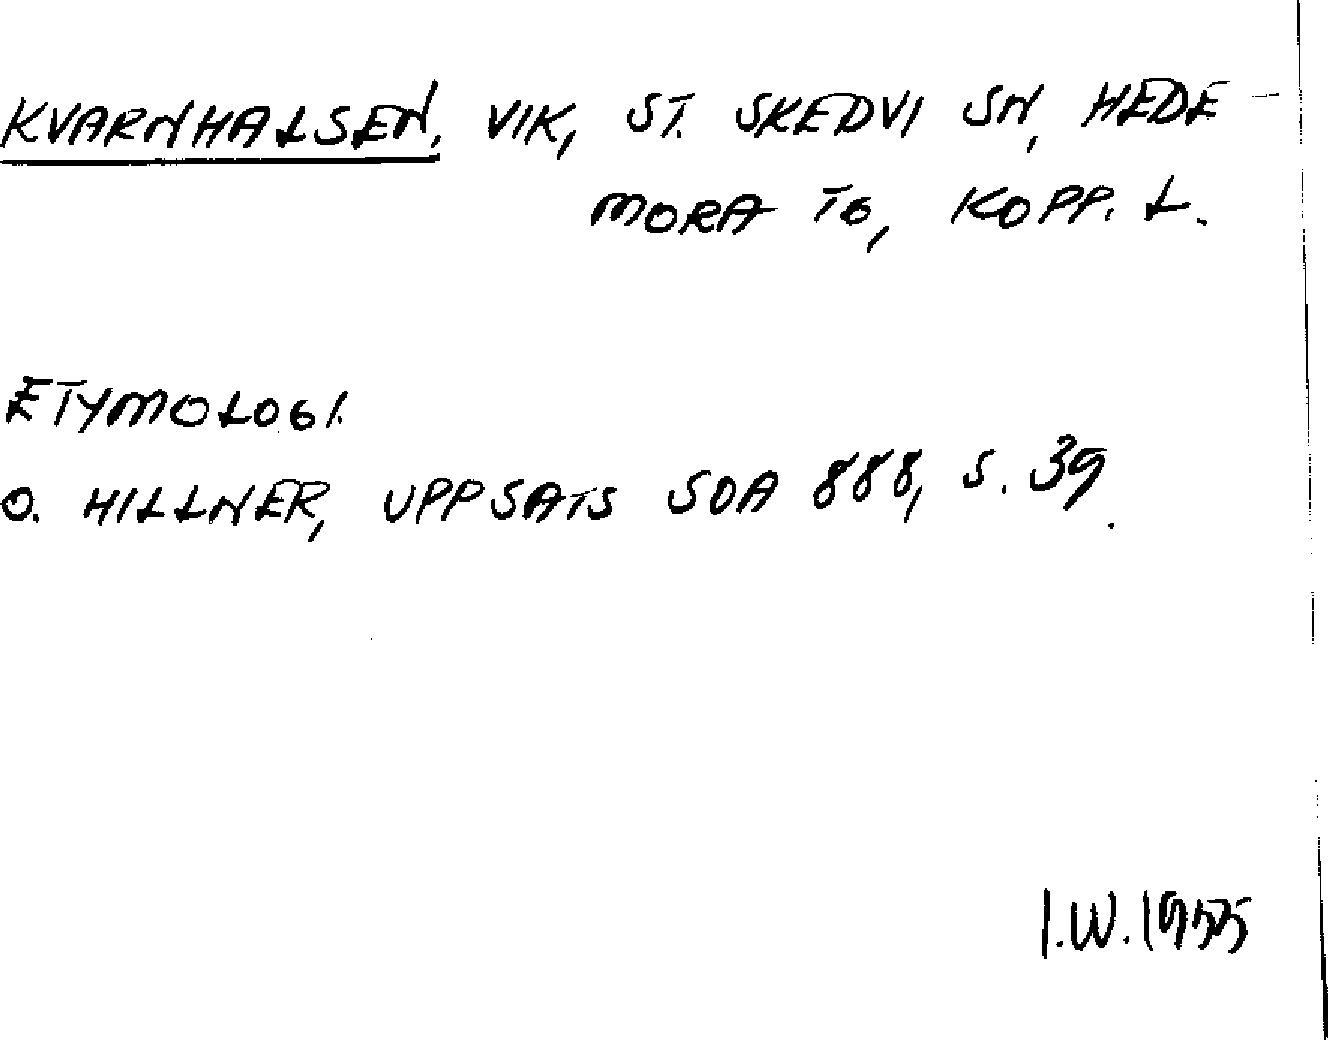 KVARNHALSEN, VIK, ST. SKEDVI SN, HEDE-
MORA TG, KOPP. L.
ETYMOLOGI.
O. HILLNER, UPPSATS SOA 888, S. 39.
I.W. 1955